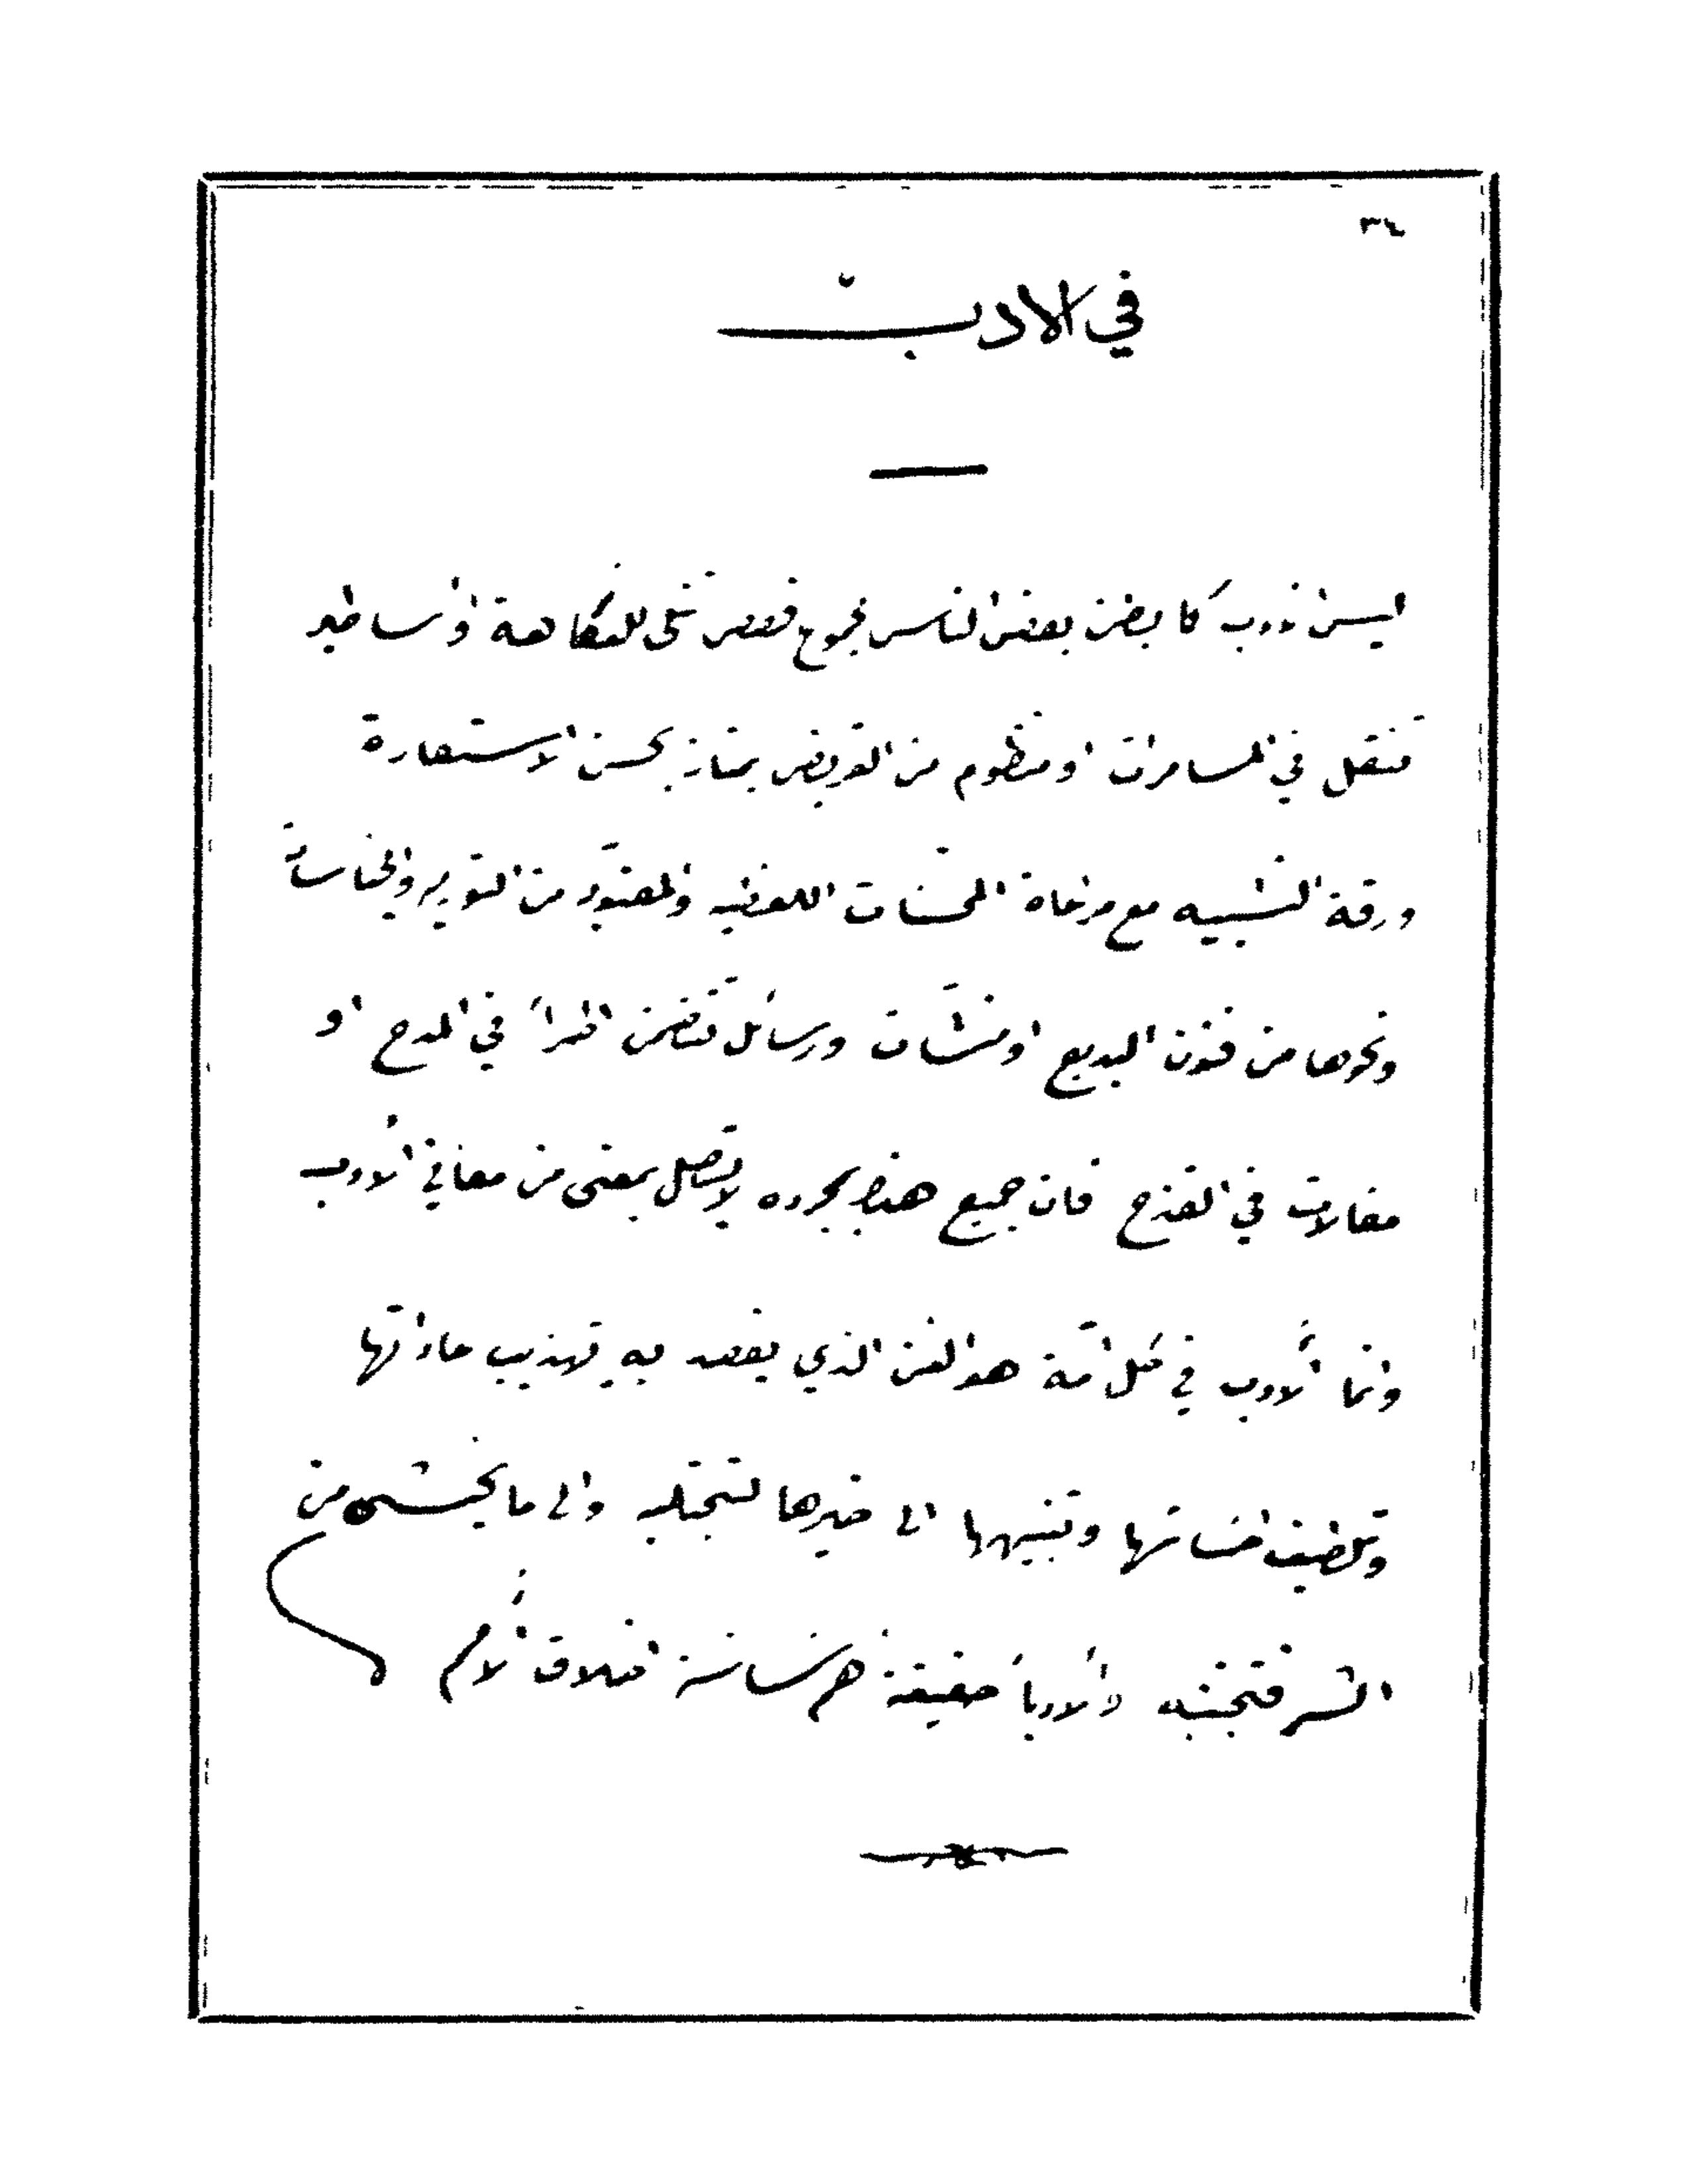 ٣٤
في الادب
ليس الادب كما يظن بعض الناس مجموع قصص تتلى للفكاهة او اساطير
تنقل في المسامرات او منظوم من القريض يمتاز بحسن الاستعارة
ورقة التشبيه مع مراعاة المحسنات اللفظيه والمعنويّه من التوريه والجناسات
ونحوها من فنون البديع او منشآت ورسائل تتضمن اطراءً في المدح او
مغالات في القدح فان جميع هذا بمجرده لا يتصل بمعنى من معاني الأدب
وانما الأدب في كل امّة هو الفن الذي يقصد به تهذيب عاداتها
وتلطيف احساساتها وتنبيهها الى خيرها لتجتلبه والى ما يخشى من
الشر فتجتنبه والأدباء حقيقة هم ساسة اخلاق الأمم